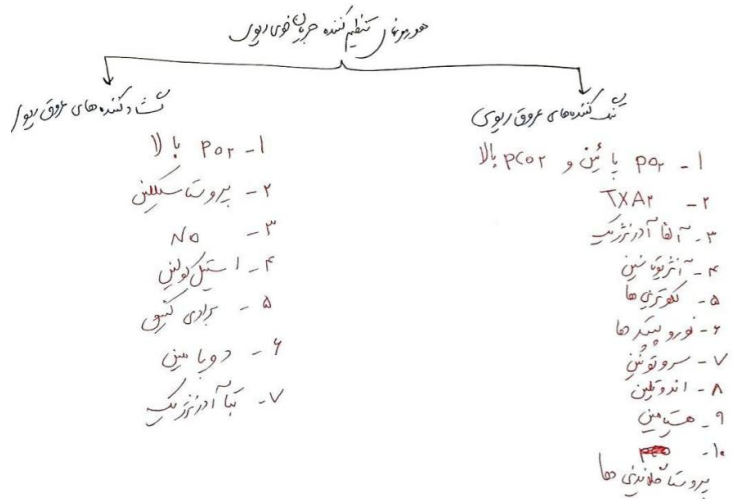 هورمونهای تنظیم کننده جریان خون ریوی
تنگ کننده‌های عروق ریوی
۱- PO۲ پائین و PCO۲ بالا
۲- TXA۲
۳- آلفا آدرنرژیک
۴- آنژیوتانسین
۵- لکوترین ها
۶- نوروپپتید ها
۷- سروتونین
۸- اندوتلین
۹- هیستامین
۱۰-
پروستاگلاندین ها
گشاد کننده های عروق ریوی
۱- PO۲ بالا
۲- پروستاسیکلین
۳- NO
۴- استیل کولین
۵- برادی کینین
۶- دوپامین
۷- بتا آدرنرژیک